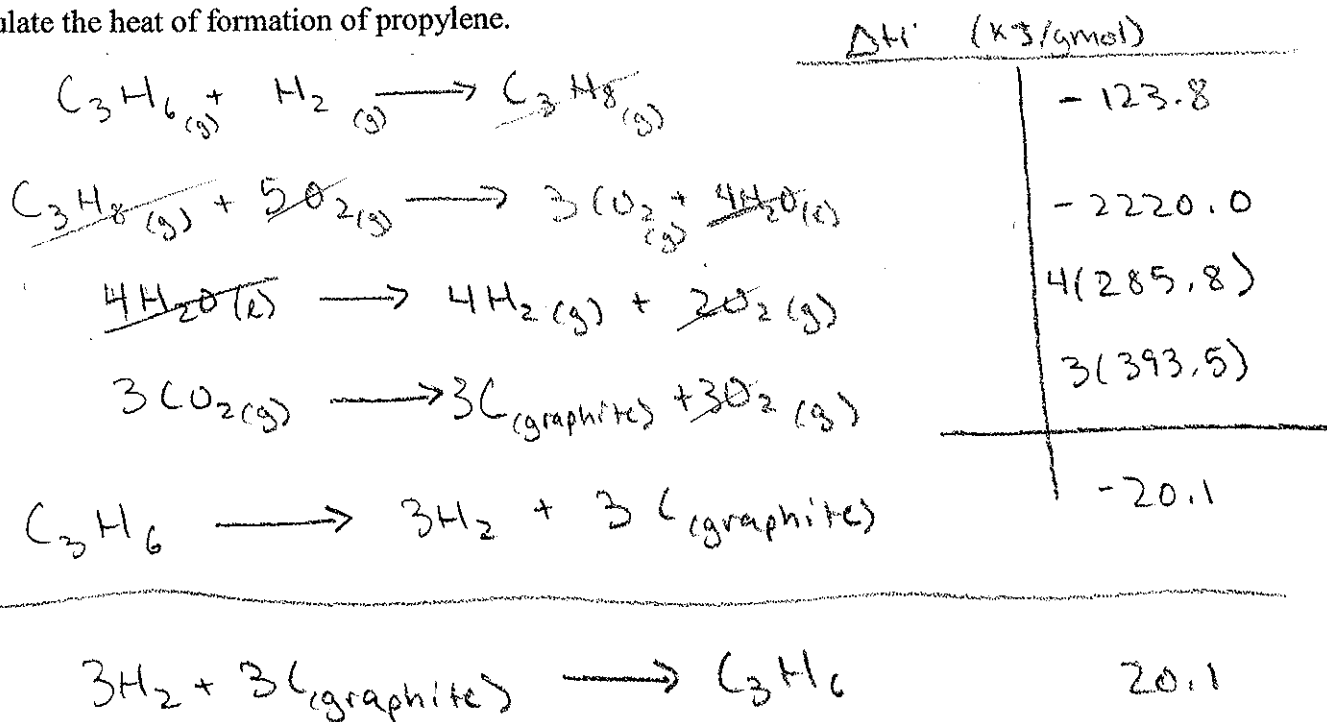 ulate the heat of formation of propylene.
ΔH (kJ/gmol)
C3H6(g) + H2(g) → C3H8(g) -123.8
C3H8(g) + 5O2(g) → 3CO2(g) + 4H2O(l) -2220.0
4H2O(l) → 4H2(g) + 2O2(g) 4(285.8)
3CO2(g) → 3C(graphite) + 3O2(g) 3(393.5)
C3H6 → 3H2 + 3C(graphite) -20.1
3H2 + 3C(graphite) → C3H6 20.1